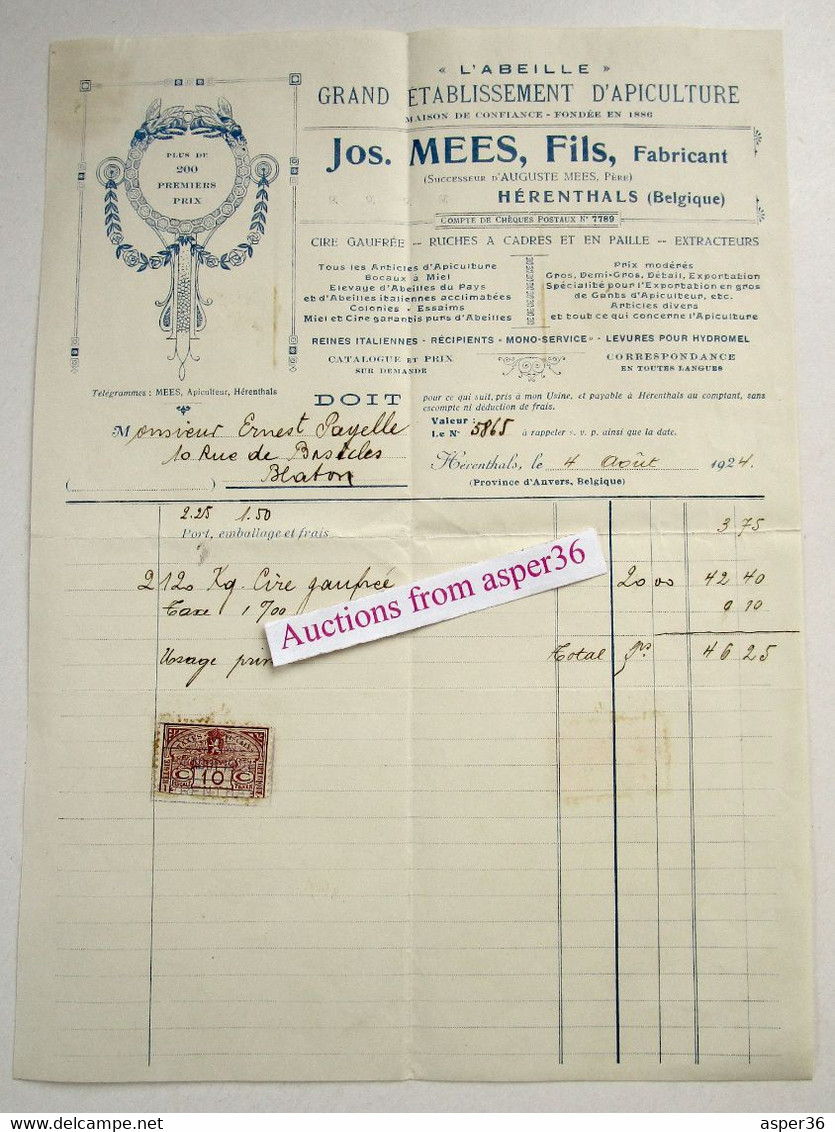 « L'ABEILLE »
GRAND ÉTABLISSEMENT D'APICULTURE
MAISON DE CONFIANCE - FONDÉE EN 1886
PLUS DE
200
PREMIERS
PRIX
Jos. MEES, Fils, Fabricant
(SUCCESSEUR D'AUGUSTE MEES, PÈRE)
HÉRENTHALS (Belgique)
COMPTE DE CHÈQUES POSTAUX N° 7789
CIRE GAUFRÉE -- RUCHES A CADRES ET EN PAILLE -- EXTRACTEURS
Tous les Articles d'Apiculture
Bocaux à Miel
Elevage d'Abeilles du Pays
et d'Abeilles italiennes acclimatées
Colonies - Essaims
Miel et Cire garantis purs d'Abeilles
Prix modérés
Gros, Demi-Gros, Détail, Exportation
Spécialité pour l'Exportation en gros
de Gants d'Apiculteur, etc.
Articles divers
et tout ce qui concerne l'Apiculture
REINES ITALIENNES - RÉCIPIENTS - MONO-SERVICE" - LEVURES POUR HYDROMEL
CATALOGUE ET PRIX
SUR DEMANDE
CORRESPONDANCE
EN TOUTES LANGUES
Télégrammes : MEES, Apiculteur, Hérenthals
DOIT
pour ce qui suit, pris à mon Usine, et payable à Hérenthals au comptant, sans
escompte ni déduction de frais.
Monsieur Ernest Payelle
Valeur :
Le N° 5865 à rappeler s. v. p. ainsi que la date.
10 Rue de Basècles
Blaton
Hérenthals, le 4 Août 1924.
(Province d'Anvers, Belgique)
2.25 1.50
Port, emballage et frais 3 75
2 120 Kg. Cire gaufrée 20 00 42 40
Taxe 1 %00 0 10
Usage Total 46 25
Auctions from asper36
C 10 C
asper36